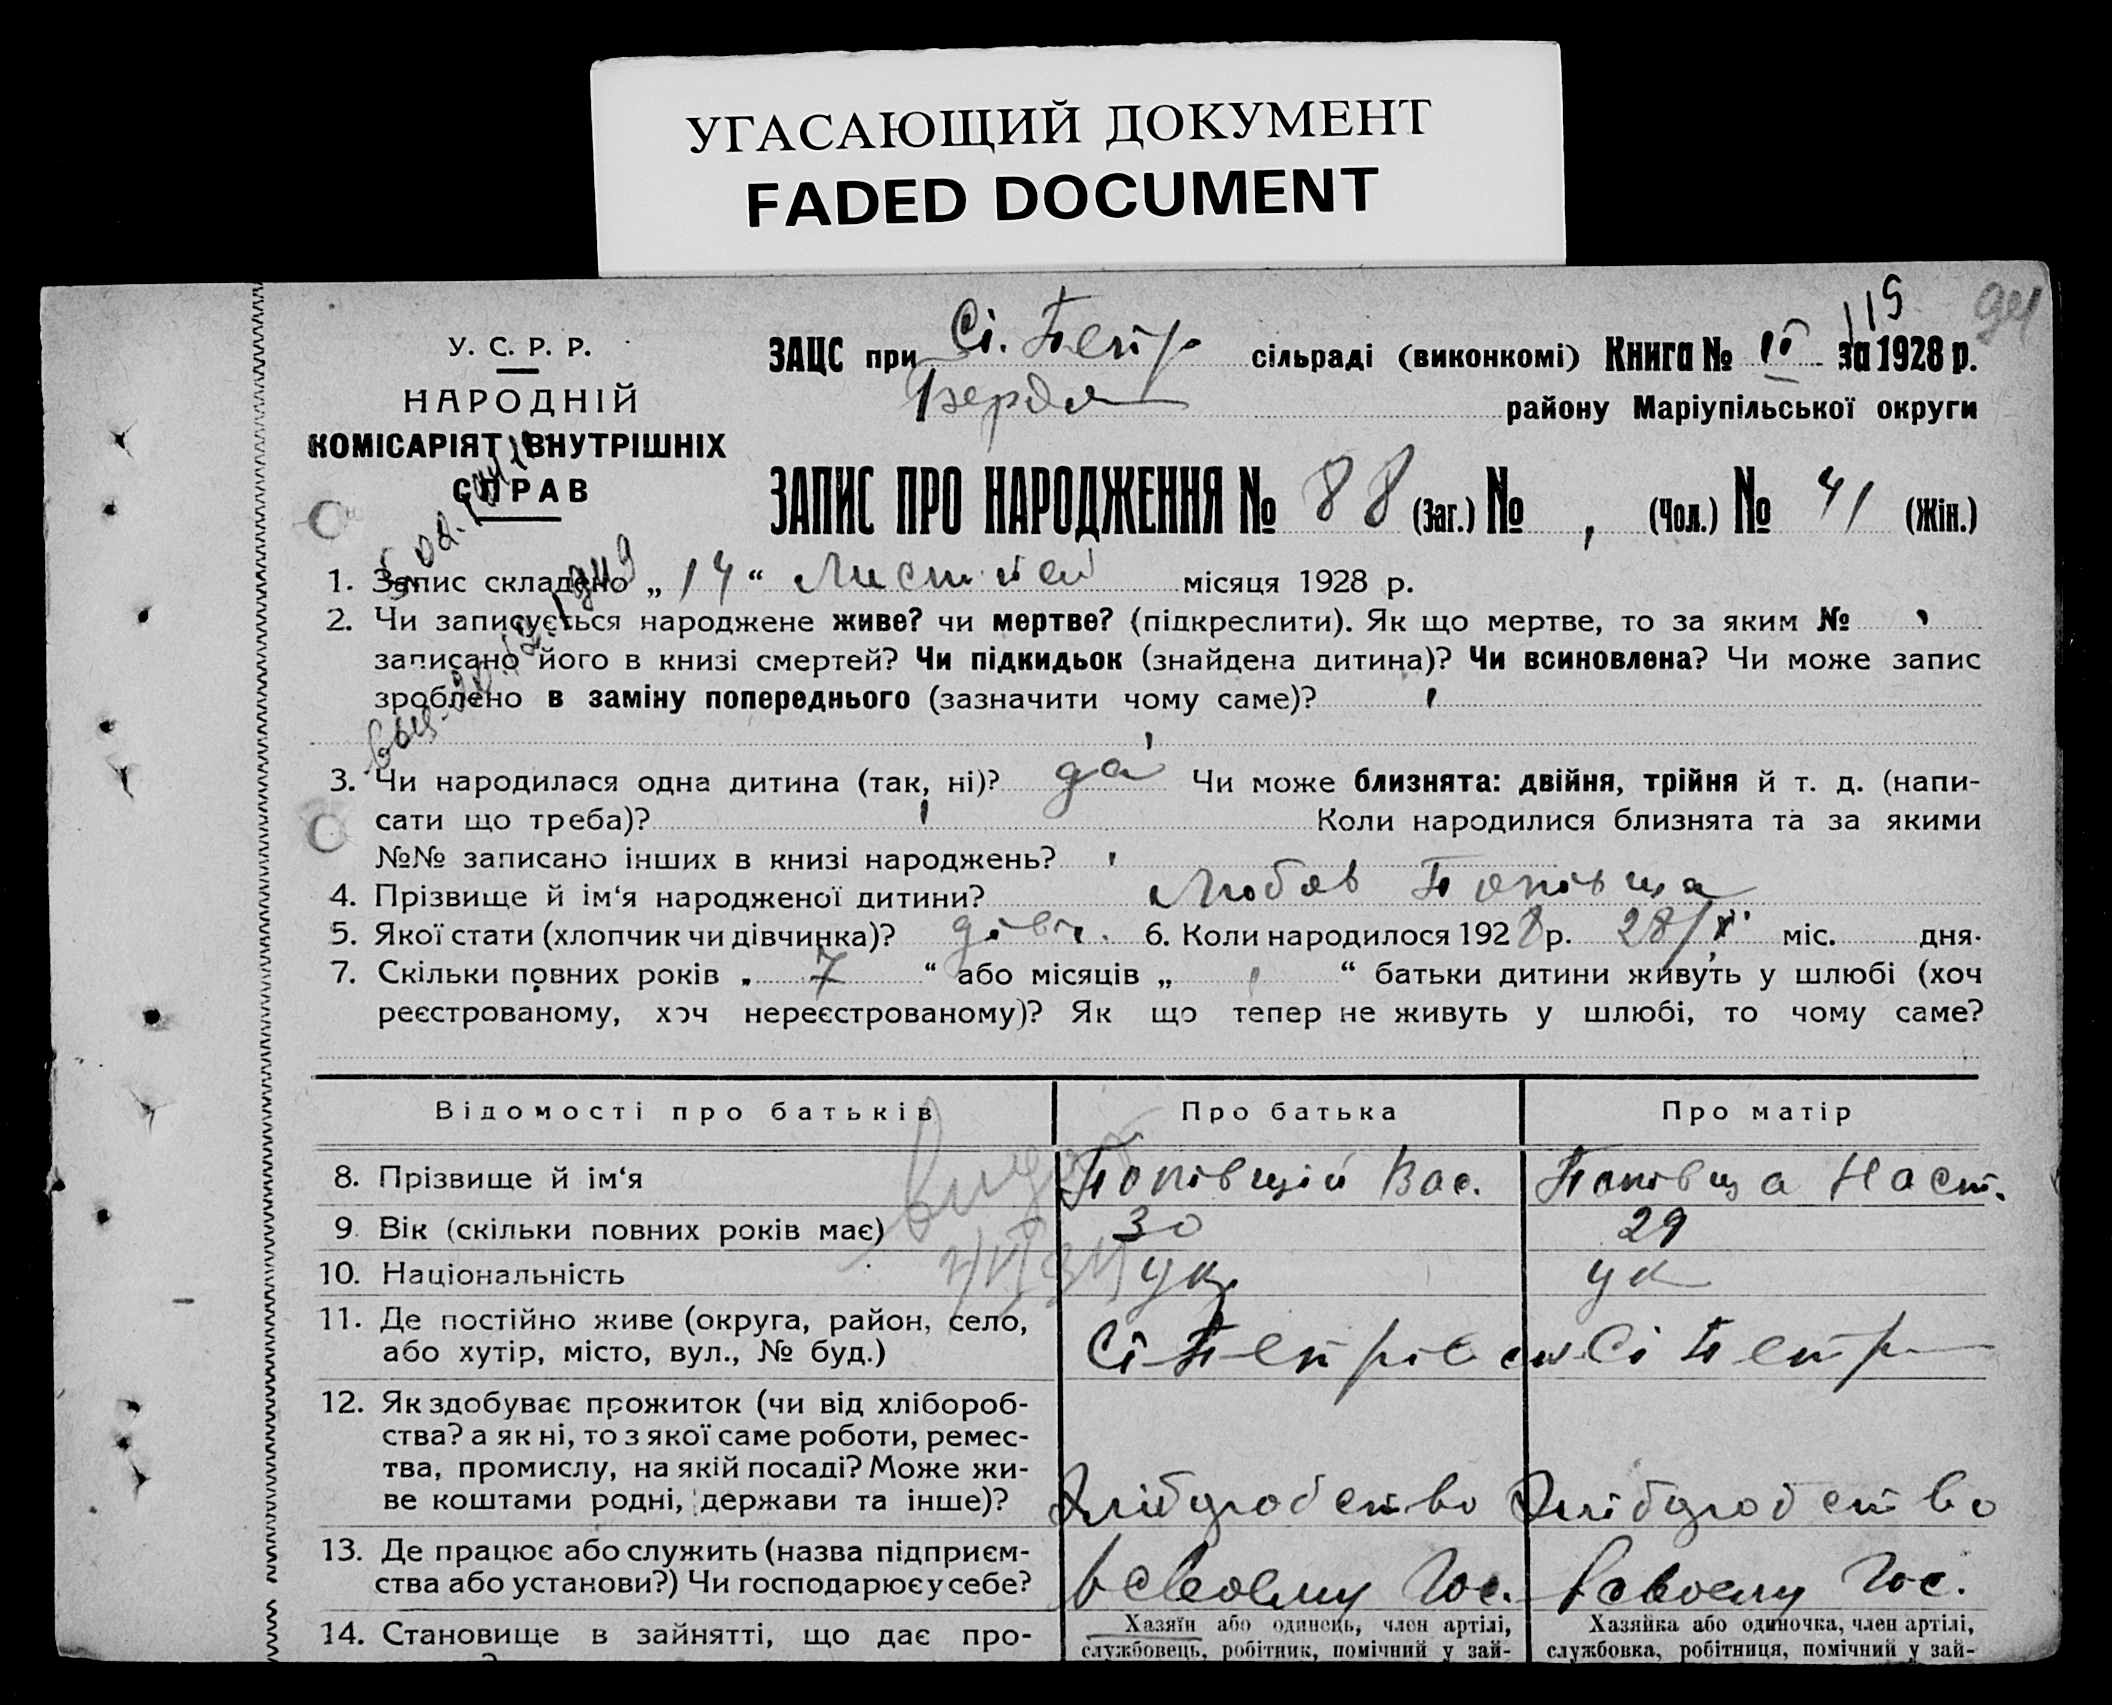 УГАСАЮЩИЙ ДОКУМЕНТ
FADED DOCUMENT
115 94
У. С. Р. Р.
НАРОДНІЙ
КОМІСАРІЯТ ВНУТРІШНІХ
СПРАВ
ЗАЦС при Сі. Петр сільраді (виконкомі) Книга № II за 1928 р.
Бердя району Маріупільської округи
ЗАПИС ПРО НАРОДЖЕННЯ № 88 (Заг.) № (Чол.) № 41 (Жін.)
1. Запис складено „ 14 “ Листпад місяця 1928 р.
2. Чи записується народжене живе? чи мертве? (підкреслити). Як що мертве, то за яким №
записано його в книзі смертей? Чи підкидьок (знайдена дитина)? Чи всиновлена? Чи може запис
зроблено в заміну попереднього (зазначити чому саме)?
3. Чи народилася одна дитина (так, ні)? да Чи може близнята: двійня, трійня й т. д. (напи-
сати що треба)? Коли народилися близнята та за якими
№№ записано інших в книзі народжень?
4. Прізвище й ім‘я народженої дитини? Любов Попівща
5. Якої стати (хлопчик чи дівчинка)? дівч. 6. Коли народилося 1928 р. 28/X міс. дня.
7. Скільки повних років „ 7 “ або місяців „ “ батьки дитини живуть у шлюбі (хоч
реєстрованому, хоч нереєстрованому)? Як що тепер не живуть у шлюбі, то чому саме?
Відомості про батьків Про батька Про матір
8. Прізвище й ім‘я Попівщій Вас. Попівща Наст.
9. Вік (скільки повних років має) 30 29
10. Національність ук. ук
11. Де постійно живе (округа, район, село,
або хутір, місто, вул., № буд.) Сі Петрівськ Сі Петр
12. Як здобуває прожиток (чи від хлібороб-
ства? а як ні, то з якої саме роботи, ремес-
тва, промислу, на якій посаді? Може жи-
ве коштами родні, держави та інше)? Хлібородство Хлібородство
13. Де працює або служить (назва підприєм-
ства або установи?) Чи господарює у себе? в своєму Гос. в своєму Гос.
14. Становище в зайнятті, що дає про-
Хазяїн або одинець, член артілі,
службовець, робітник, помічний у зай-
Хазяйка або одиночка, член артілі,
службовка, робітниця, помічний у зай-